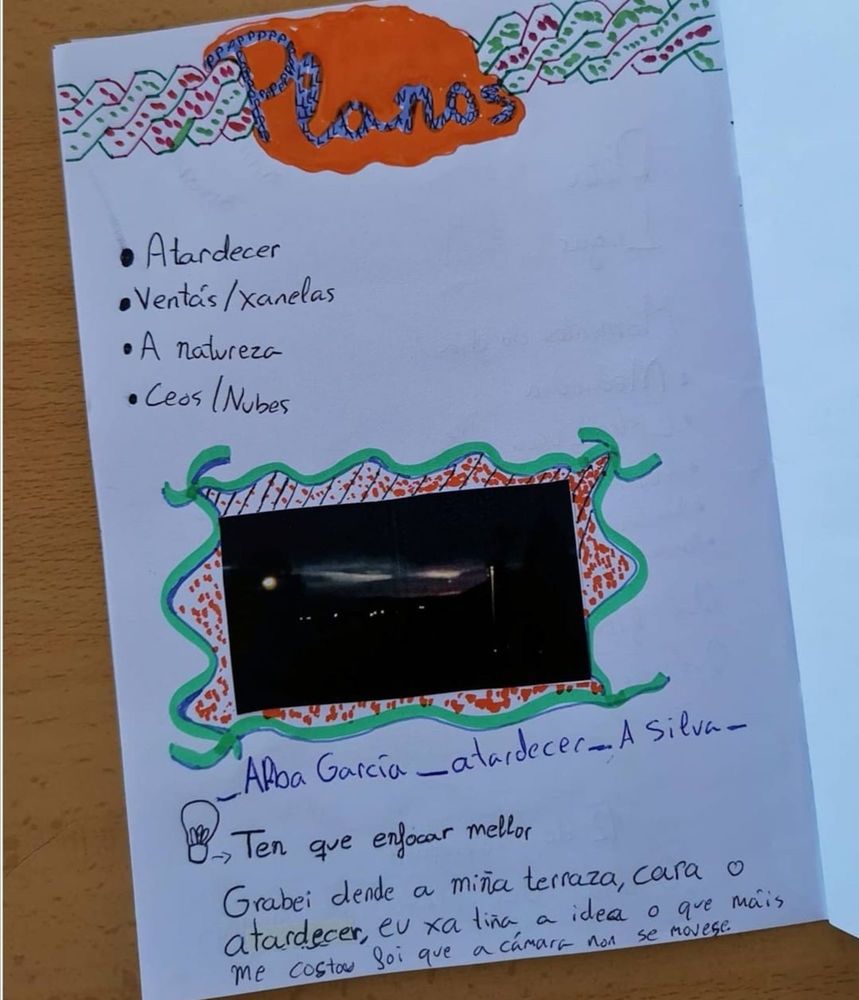 Planos
• Atardecer
• Ventás/xanelas
• A natureza
• Ceos/Nubes
_Alba García _atardecer_ A Silva_
→ Ten que enfocar mellor
Grabei dende a miña terraza, cara o
atardecer, eu xa tiña a idea o que máis
me costou foi que a cámara non se movese